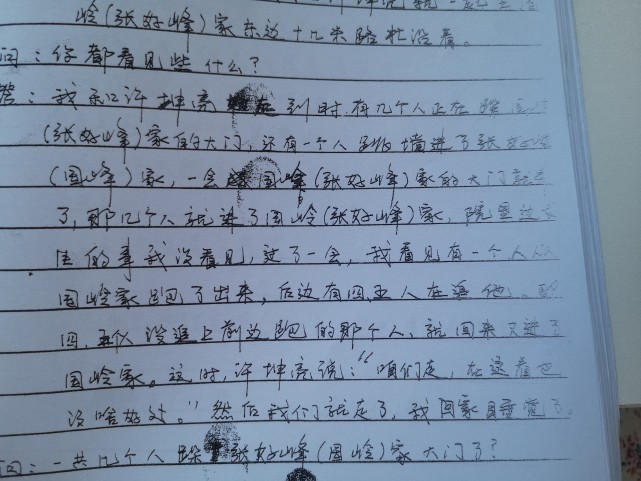 岭(张好峰)家东边十几米路杜沿着。
问：你都看见些什么？
答：我和许坤亮 到时，有几个人正在跺国岭
(张好峰)家的大门，还有一个人 墙进了张好
(国峰)家，一会 国峰(张好峰)家的大门就
了，那几个人就进了国岭(张好峰)家，院里
的事我没看见，过了一会，我看见有一个人从
国岭家跑了出来，后边有四五人在追他。
四、五人没追上前边跑的那个人，就回来又进了
国岭家。这时，许坤亮说：“咱们走，在这看也
没啥好处。”然后我们就走了，我回家睡觉了。
问：一共几个人跺张好峰(国岭)家大门了？